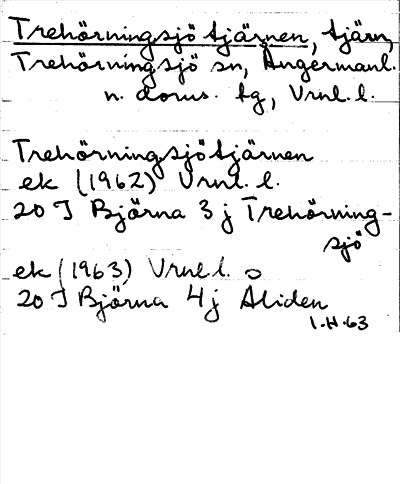 Trehörningsjötjärnen, tjärn,
Trehörningsjö sn, Ångermanl.
n. doms. tg, Vrnl. l.
Trehörningsjötjärnen
ek (1962) Vrnl. l.
20 J Björna 3 j Trehörning-
sjö
ek (1963) Vrnl. l.
20 J Björna 4 j Åliden
I.H.63